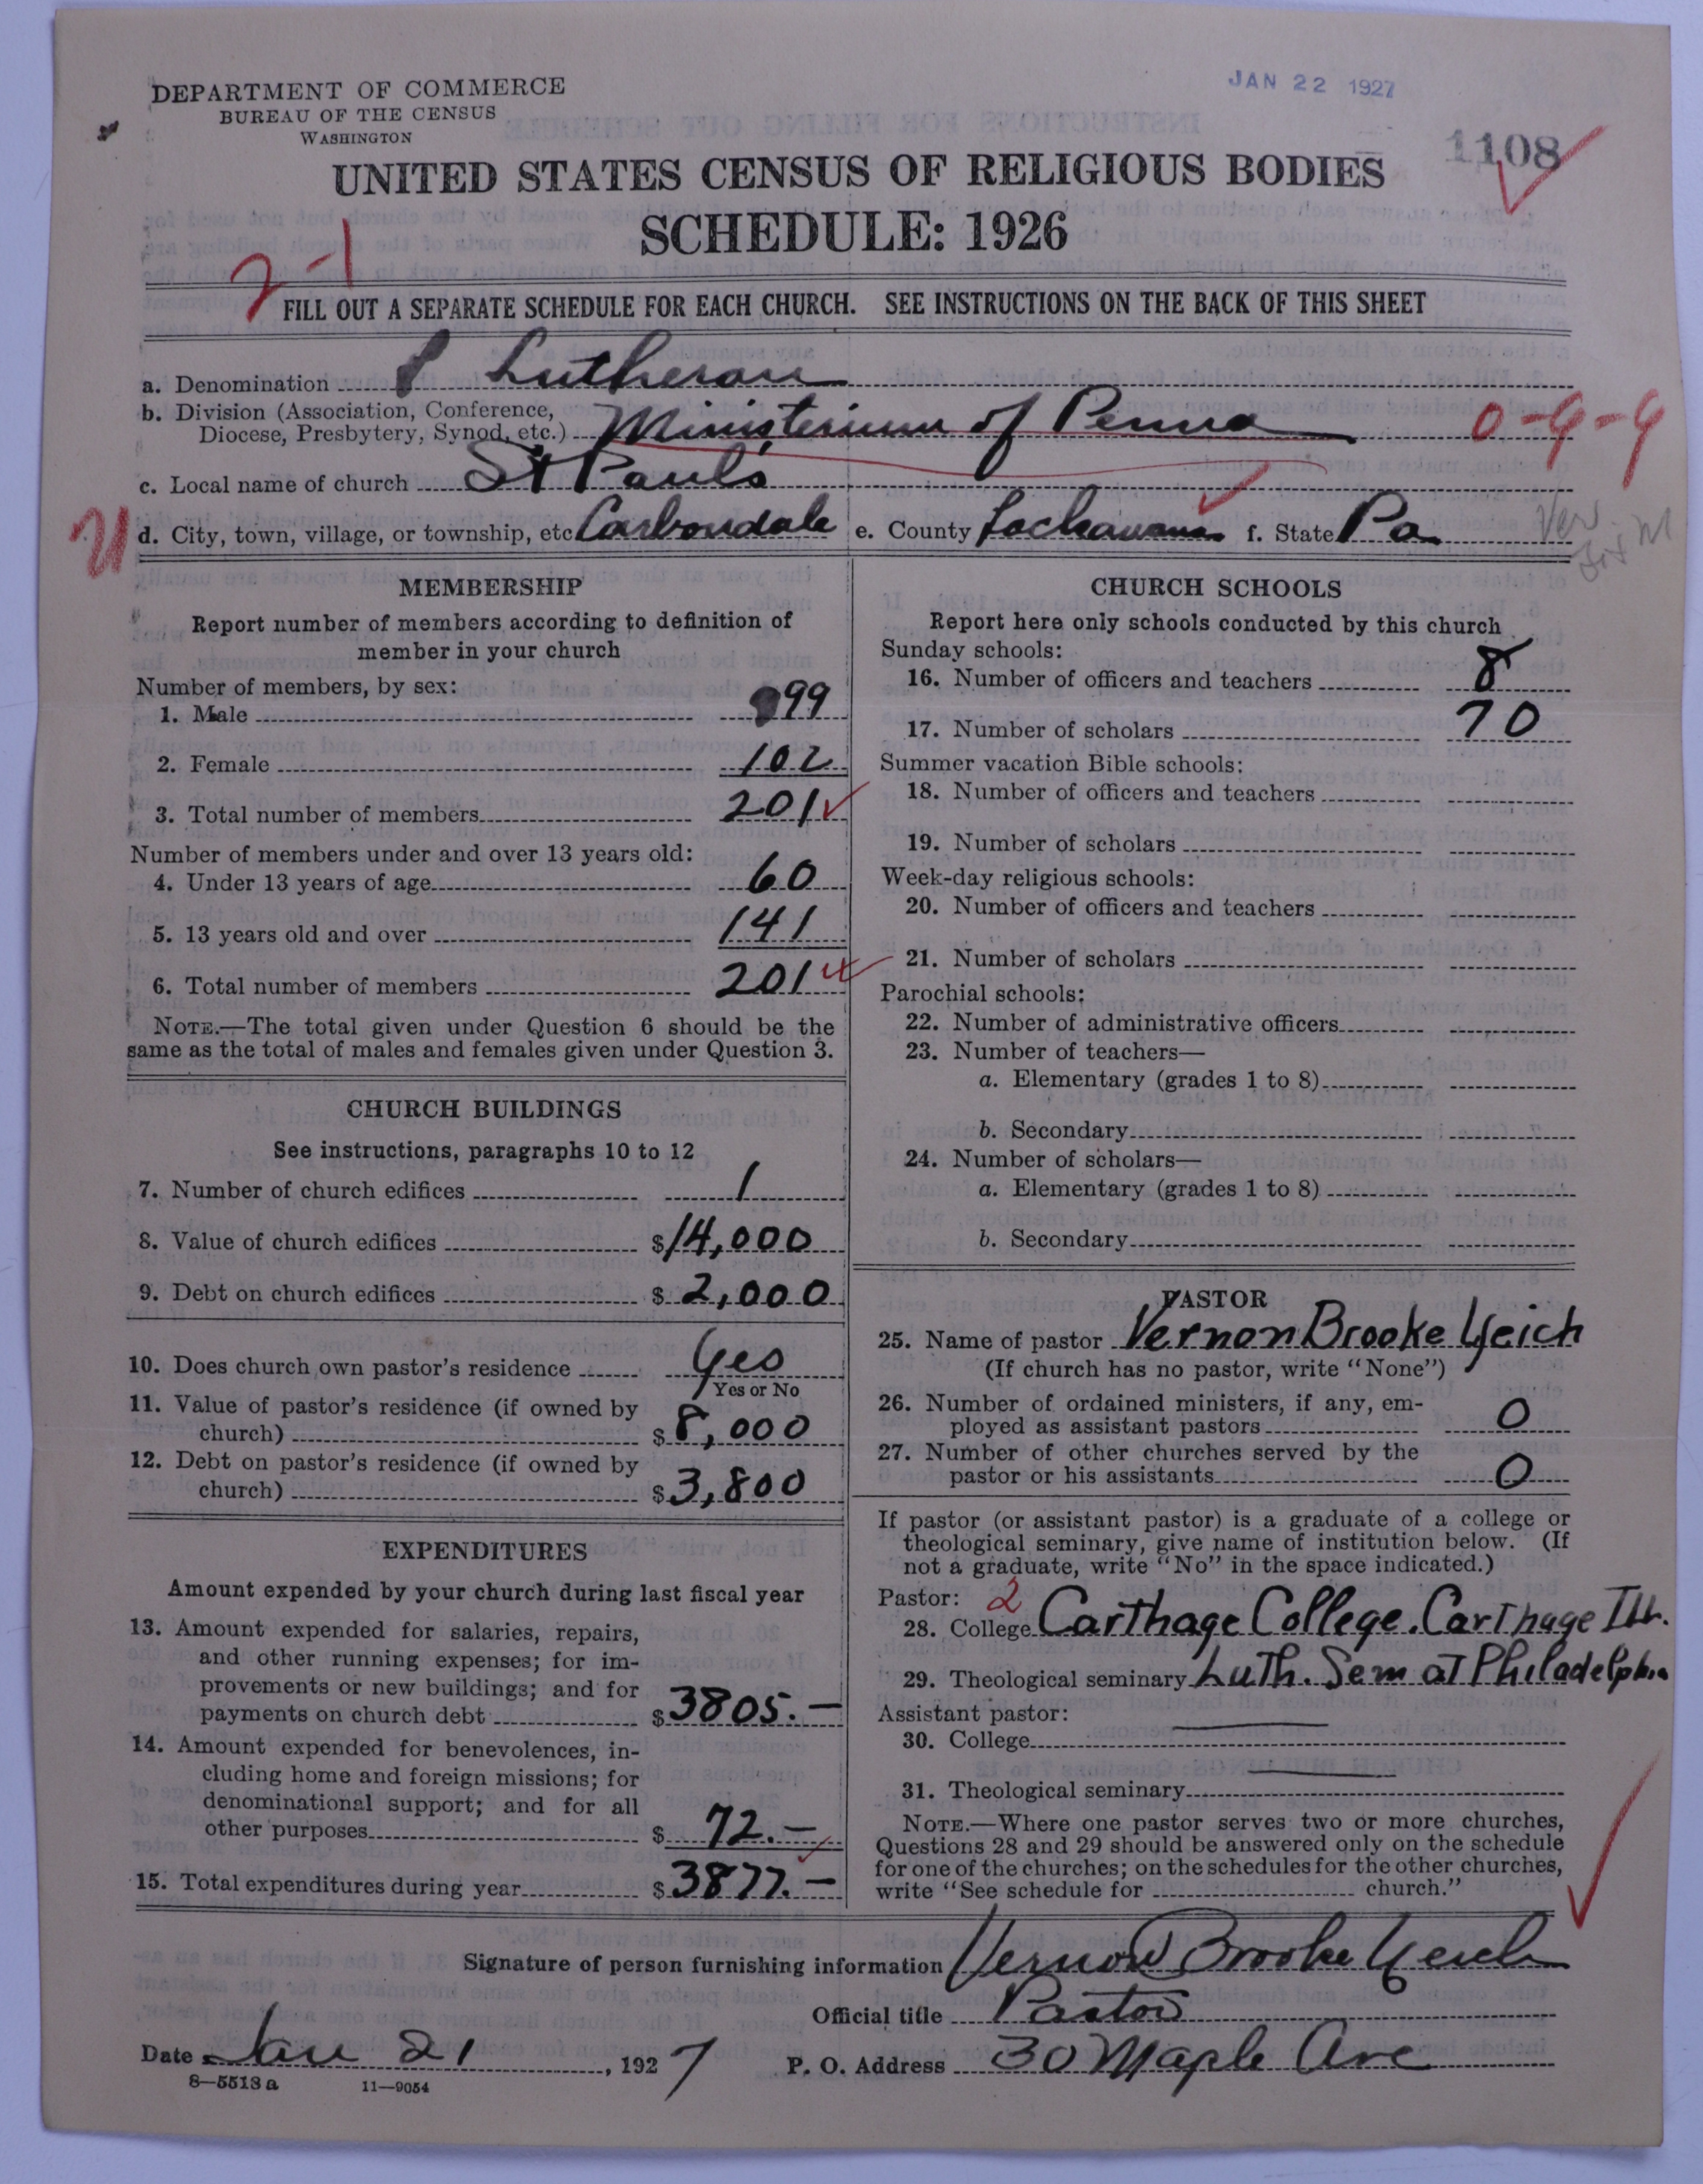 JAN 22 1927
DEPARTMENT OF COMMERCE
BUREAU OF THE CENSUS
WASHINGTON
1108
UNITED STATES CENSUS OF RELIGIOUS BODIES
SCHEDULE: 1926
2-1
FILL OUT A SEPARATE SCHEDULE FOR EACH CHURCH. SEE INSTRUCTIONS ON THE BACK OF THIS SHEET
a. Denomination Lutheran
b. Division (Association, Conference,
Diocese, Presbytery, Synod, etc.) Ministerium of Penna 0-9-9
c. Local name of church St Paul's
d. City, town, village, or township, etc Carbondale e. County Lackawanna f. State Pa
MEMBERSHIP
Report number of members according to definition of
member in your church
Number of members, by sex:
1. Male 99
2. Female 102
3. Total number of members 201
Number of members under and over 13 years old:
4. Under 13 years of age 60
5. 13 years old and over 141
6. Total number of members 201
NOTE.—The total given under Question 6 should be the
same as the total of males and females given under Question 3.
CHURCH BUILDINGS
See instructions, paragraphs 10 to 12
7. Number of church edifices 1
8. Value of church edifices $14,000
9. Debt on church edifices $2,000
10. Does church own pastor's residence Yes
Yes or No
11. Value of pastor's residence (if owned by
church) $8,000
12. Debt on pastor's residence (if owned by
church) $3,800
EXPENDITURES
Amount expended by your church during last fiscal year
13. Amount expended for salaries, repairs,
and other running expenses; for im-
provements or new buildings; and for
payments on church debt $3805.—
14. Amount expended for benevolences, in-
cluding home and foreign missions; for
denominational support; and for all
other purposes $72.—
15. Total expenditures during year $3877.—
CHURCH SCHOOLS
Report here only schools conducted by this church
Sunday schools:
16. Number of officers and teachers 8
17. Number of scholars 70
Summer vacation Bible schools:
18. Number of officers and teachers
19. Number of scholars
Week-day religious schools:
20. Number of officers and teachers
21. Number of scholars
Parochial schools:
22. Number of administrative officers
23. Number of teachers—
a. Elementary (grades 1 to 8)
b. Secondary
24. Number of scholars—
a. Elementary (grades 1 to 8)
b. Secondary
PASTOR
25. Name of pastor Vernon Brooke Yeich
(If church has no pastor, write "None")
26. Number of ordained ministers, if any, em-
ployed as assistant pastors 0
27. Number of other churches served by the
pastor or his assistants 0
If pastor (or assistant pastor) is a graduate of a college or
theological seminary, give name of institution below. (If
not a graduate, write "No" in the space indicated.)
Pastor: 2
28. College Carthage College. Carthage Ill.
29. Theological seminary Luth. Sem at Philadelphia
Assistant pastor:
30. College
31. Theological seminary
NOTE.—Where one pastor serves two or more churches,
Questions 28 and 29 should be answered only on the schedule
for one of the churches; on the schedules for the other churches,
write "See schedule for church."
Signature of person furnishing information Vernon Brooke Yeich
Official title Pastor
Date Jan 21, 1927 P. O. Address 30 Maple Ave
8—5513a 11—9054